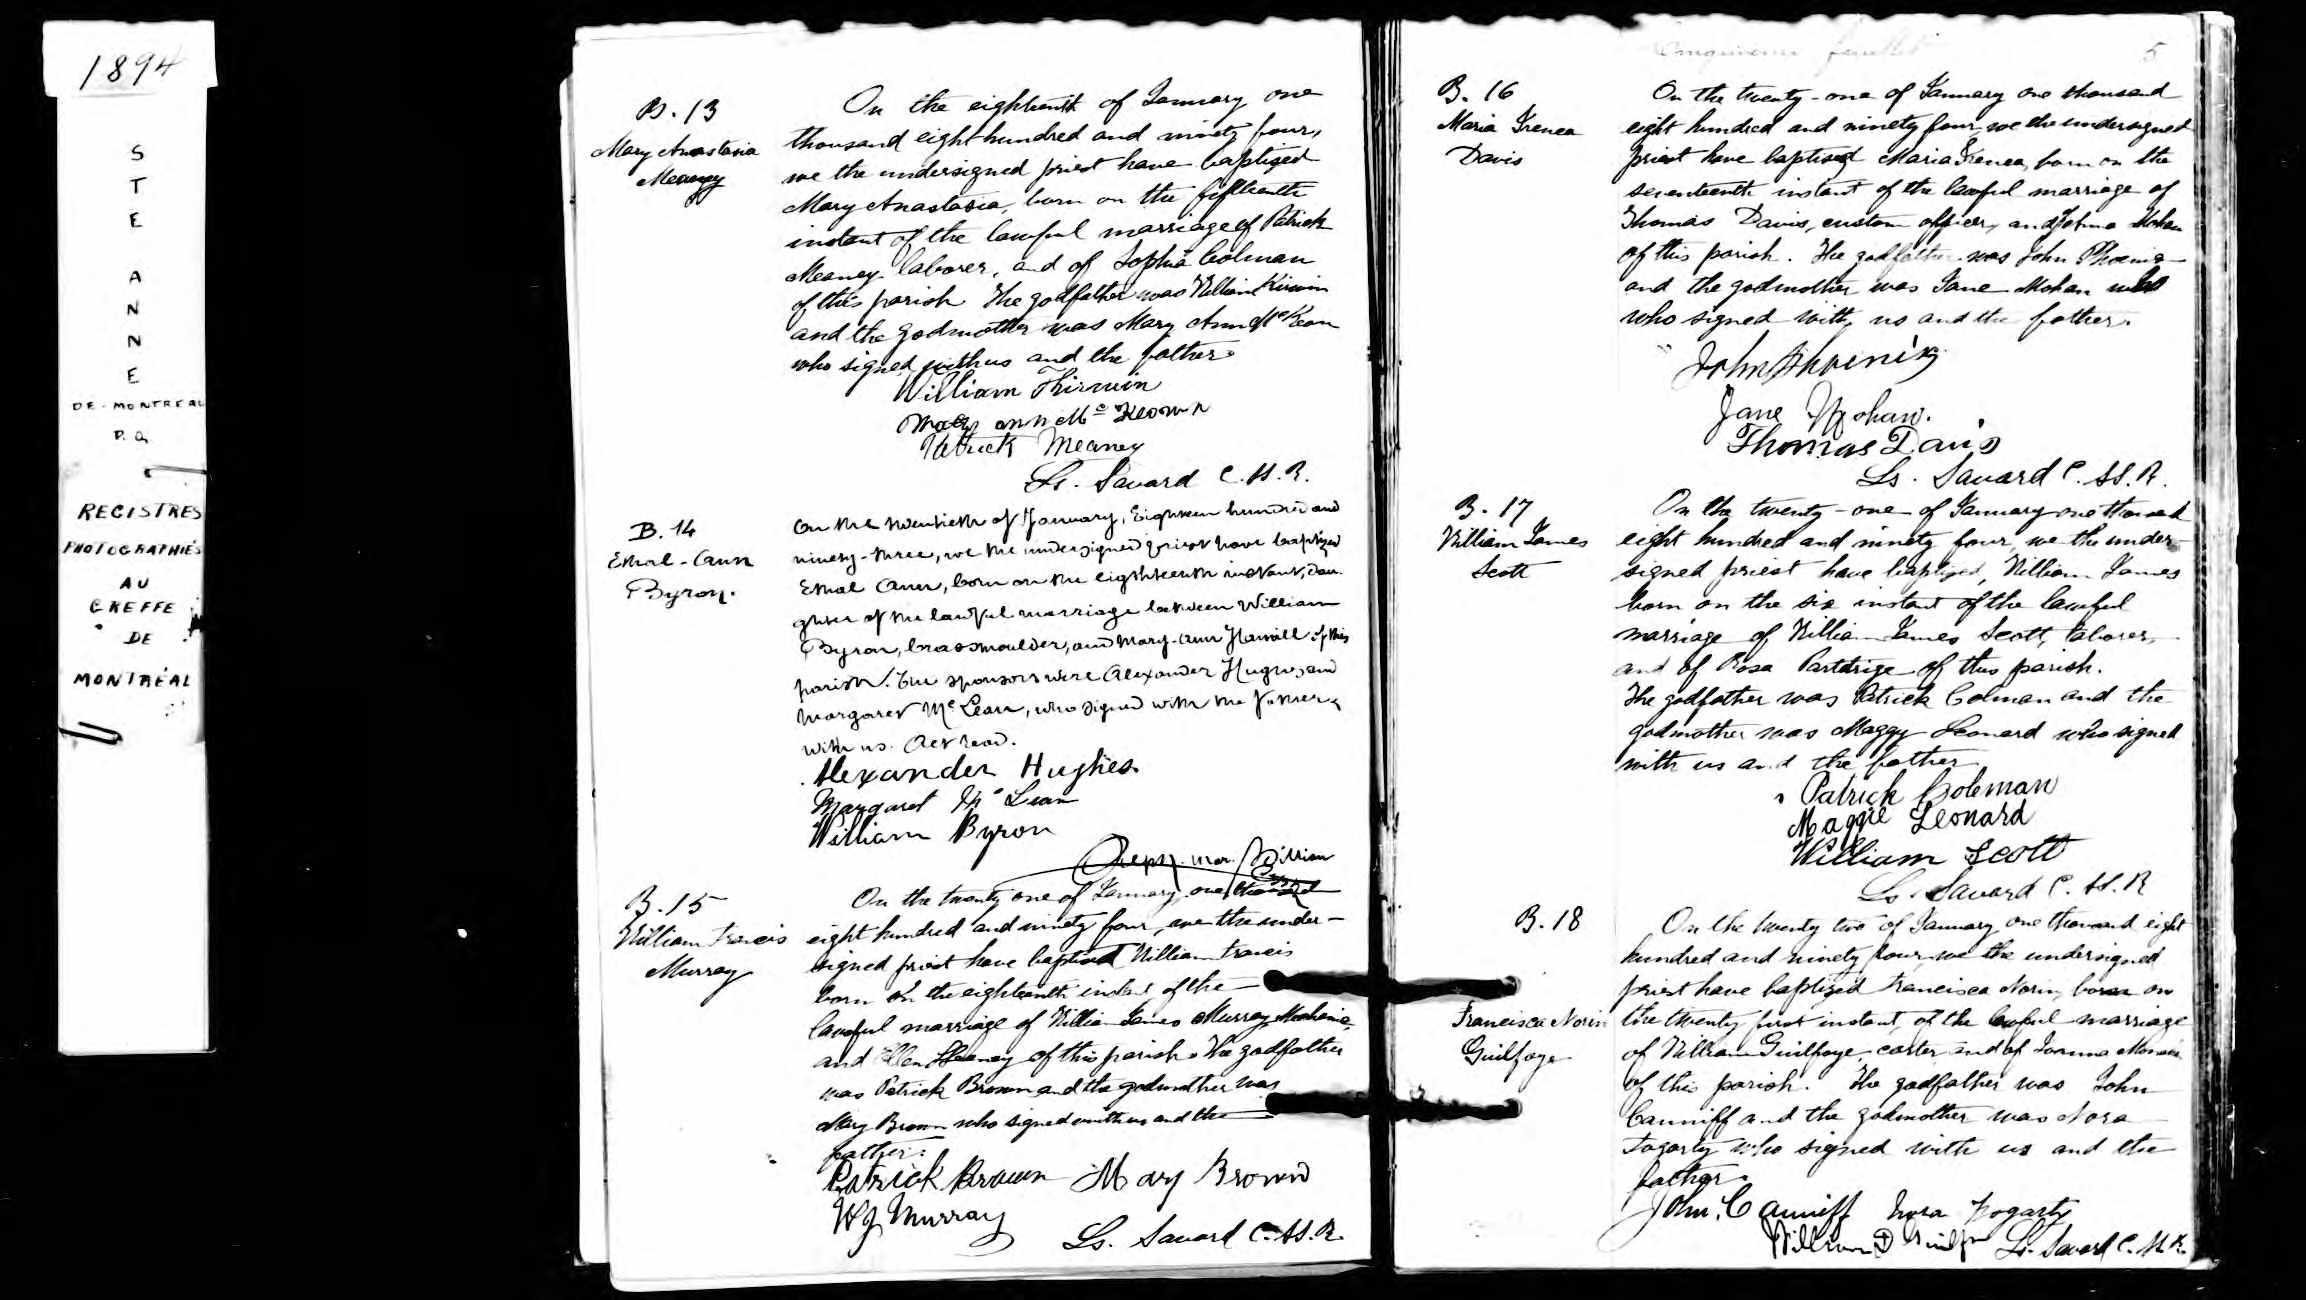 1894
S
T
E
A
N
N
E
DE-MONTREAL
P.Q.
REGISTRES
PHOTOGRAPHIÉS
AU
GREFFE
DE
MONTRÉAL
B. 13
Mary Anastasia
Meaney
On the eighteenth of January one
thousand eight hundred and ninety four,
we the undersigned priest have baptized
Mary Anastasia, born on the fifteenth
instant of the lawful marriage of Patrick
Meaney laborer, and of Sophia Colman
of this parish The godfather was William Kirwin
and the godmother was Mary Ann McKeon
who signed with us and the father.
William Kirwin
Mary ann Mc Keown
Patrick Meaney
Ls. Savard C.SS.R.
B. 14
Ethel-Ann
Byron.
On the twentieth of January, Eighteen hundred and
ninety-three, we the undersigned priest have baptized
Ethel Ann, born on the eighteenth instant, dau-
ghter of the lawful marriage between William
Byron, brassmoulder, and Mary-Ann of this
parish. The sponsors were Alexander Hughes, and
Margaret Mc Lean, who signed with the Father &
with us. Act read.
Alexander Hughes.
Margaret Mc Lean
William Byron
B. 15
William Francis
Murray
On the twenty one of January one thousand
eight hundred and ninety four, we the under-
signed priest have baptized William Francis
born on the eighteenth instant of the
lawful marriage of William James Murray, Mechanic,
and Ellen Heaney of this parish. The godfather
was Patrick Brown and the godmother was
Mary Brown who signed with us and the
father.
Patrick Brown Mary Brown
WJ Murray
Ls. Savard C.SS.R.
Cinquième feuillet 5
B. 16
Maria Irenea
Davis
On the twenty-one of January one thousand
eight hundred and ninety four, we the undersigned
priest have baptised Maria Irenea, born on the
seventeenth instant of the lawful marriage of
Thomas Davis, custom officer, and Mohan
of this parish. The godfather was John Phoenix
and the godmother was Jane Mohan
who signed with us and the father.
John Phoenix
Jane Mohan.
Thomas Davis
Ls. Savard C.SS.R.
B. 17
William James
Scott
On the twenty-one of January one thousand
eight hundred and ninety four, we the under-
signed priest have baptized, William James
born on the six instant of the lawful
marriage of William James Scott, laborer,
and of Rosa Partdrige of this parish.
The godfather was Patrick Colman and the
godmother was Maggy Leonard who signed
with us and the father
Patrick Coleman
Maggie Leonard
William Scott
Ls. Savard C.SS.R
B. 18
Francisca Norin
Guilfoye
On the twenty two of January one thousand eight
hundred and ninety four, we the undersigned
priest have baptized Francisca Norin, born on
the twenty first instant, of the lawful marriage
of William Guilfoye, carter and of Joanna
of this parish. The godfather was John
Canniff and the godmother was Nora
Fogarty who signed with us and the
father.
John Canniff Nora Fogarty
William Ls. Savard C.SS.R.